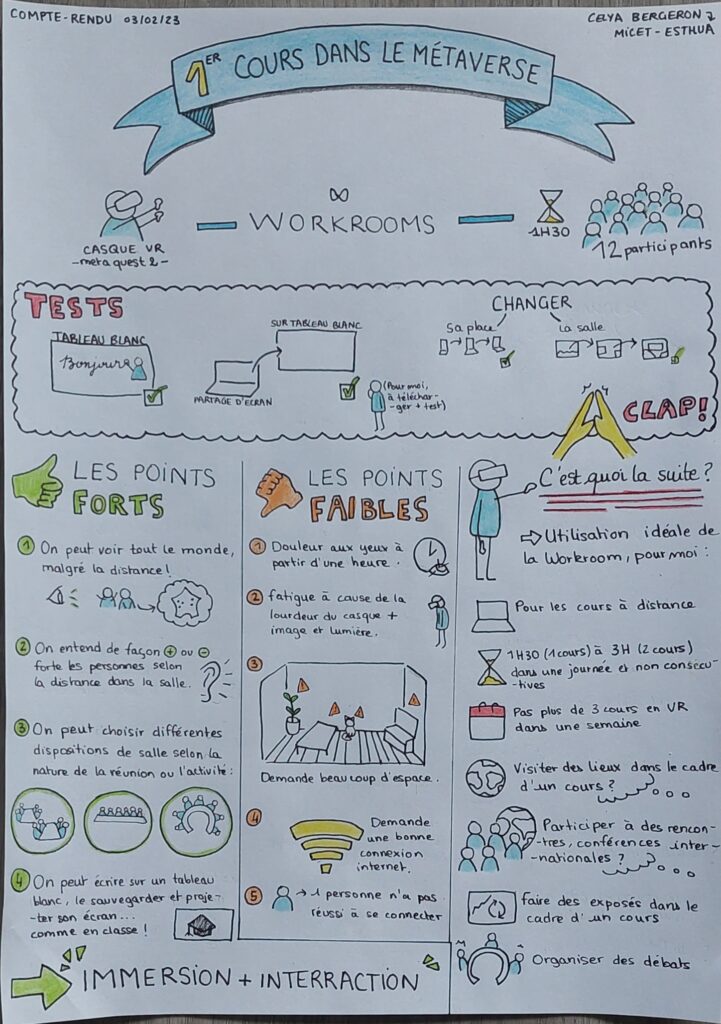 COMPTE-RENDU 03/02/23
CELYA BERGERON
MICET - ESTHUA
1ER COURS DANS LE MÉTAVERSE
CASQUE VR
- meta quest 2 -
WORKROOMS
1H30
12 participants
TESTS
TABLEAU BLANC
Bonjour
SUR TABLEAU BLANC
PARTAGE D'ECRAN
(Pour moi,
à téléchar-
-ger + test)
CHANGER
sa place
la salle
CLAP!
LES POINTS
FORTS
1 On peut voir tout le monde,
malgré la distance!
2 On entend de façon + ou -
forte les personnes selon
la distance dans la salle.
3 On peut choisir différentes
dispositions de salle selon la
nature de la réunion ou l'activité:
4 On peut écrire sur un tableau
blanc, le sauvegarder et proje-
-ter son écran...
comme en classe!
LES POINTS
FAIBLES
1 Douleur aux yeux à
partir d'une heure.
2 fatigue à cause de la
lourdeur du casque +
image et lumière.
3
Demande beaucoup d'espace.
4 Demande
une bonne
connexion
internet.
5 → 1 personne n'a pas
réussi à se connecter
C'est quoi la suite?
⇒ Utilisation idéale de
la Workroom, pour moi:
Pour les cours à distance
1H30 (1 cours) à 3H (2 cours)
dans une journée et non consécu-
-tives
Pas plus de 3 cours en VR
dans une semaine
Visiter des lieux dans le cadre
d'un cours?
Participer à des rencon-
-tres, conférences inter-
-nationales?
faire des exposés dans le
cadre d'un cours
Organiser des débats
IMMERSION + INTERRACTION